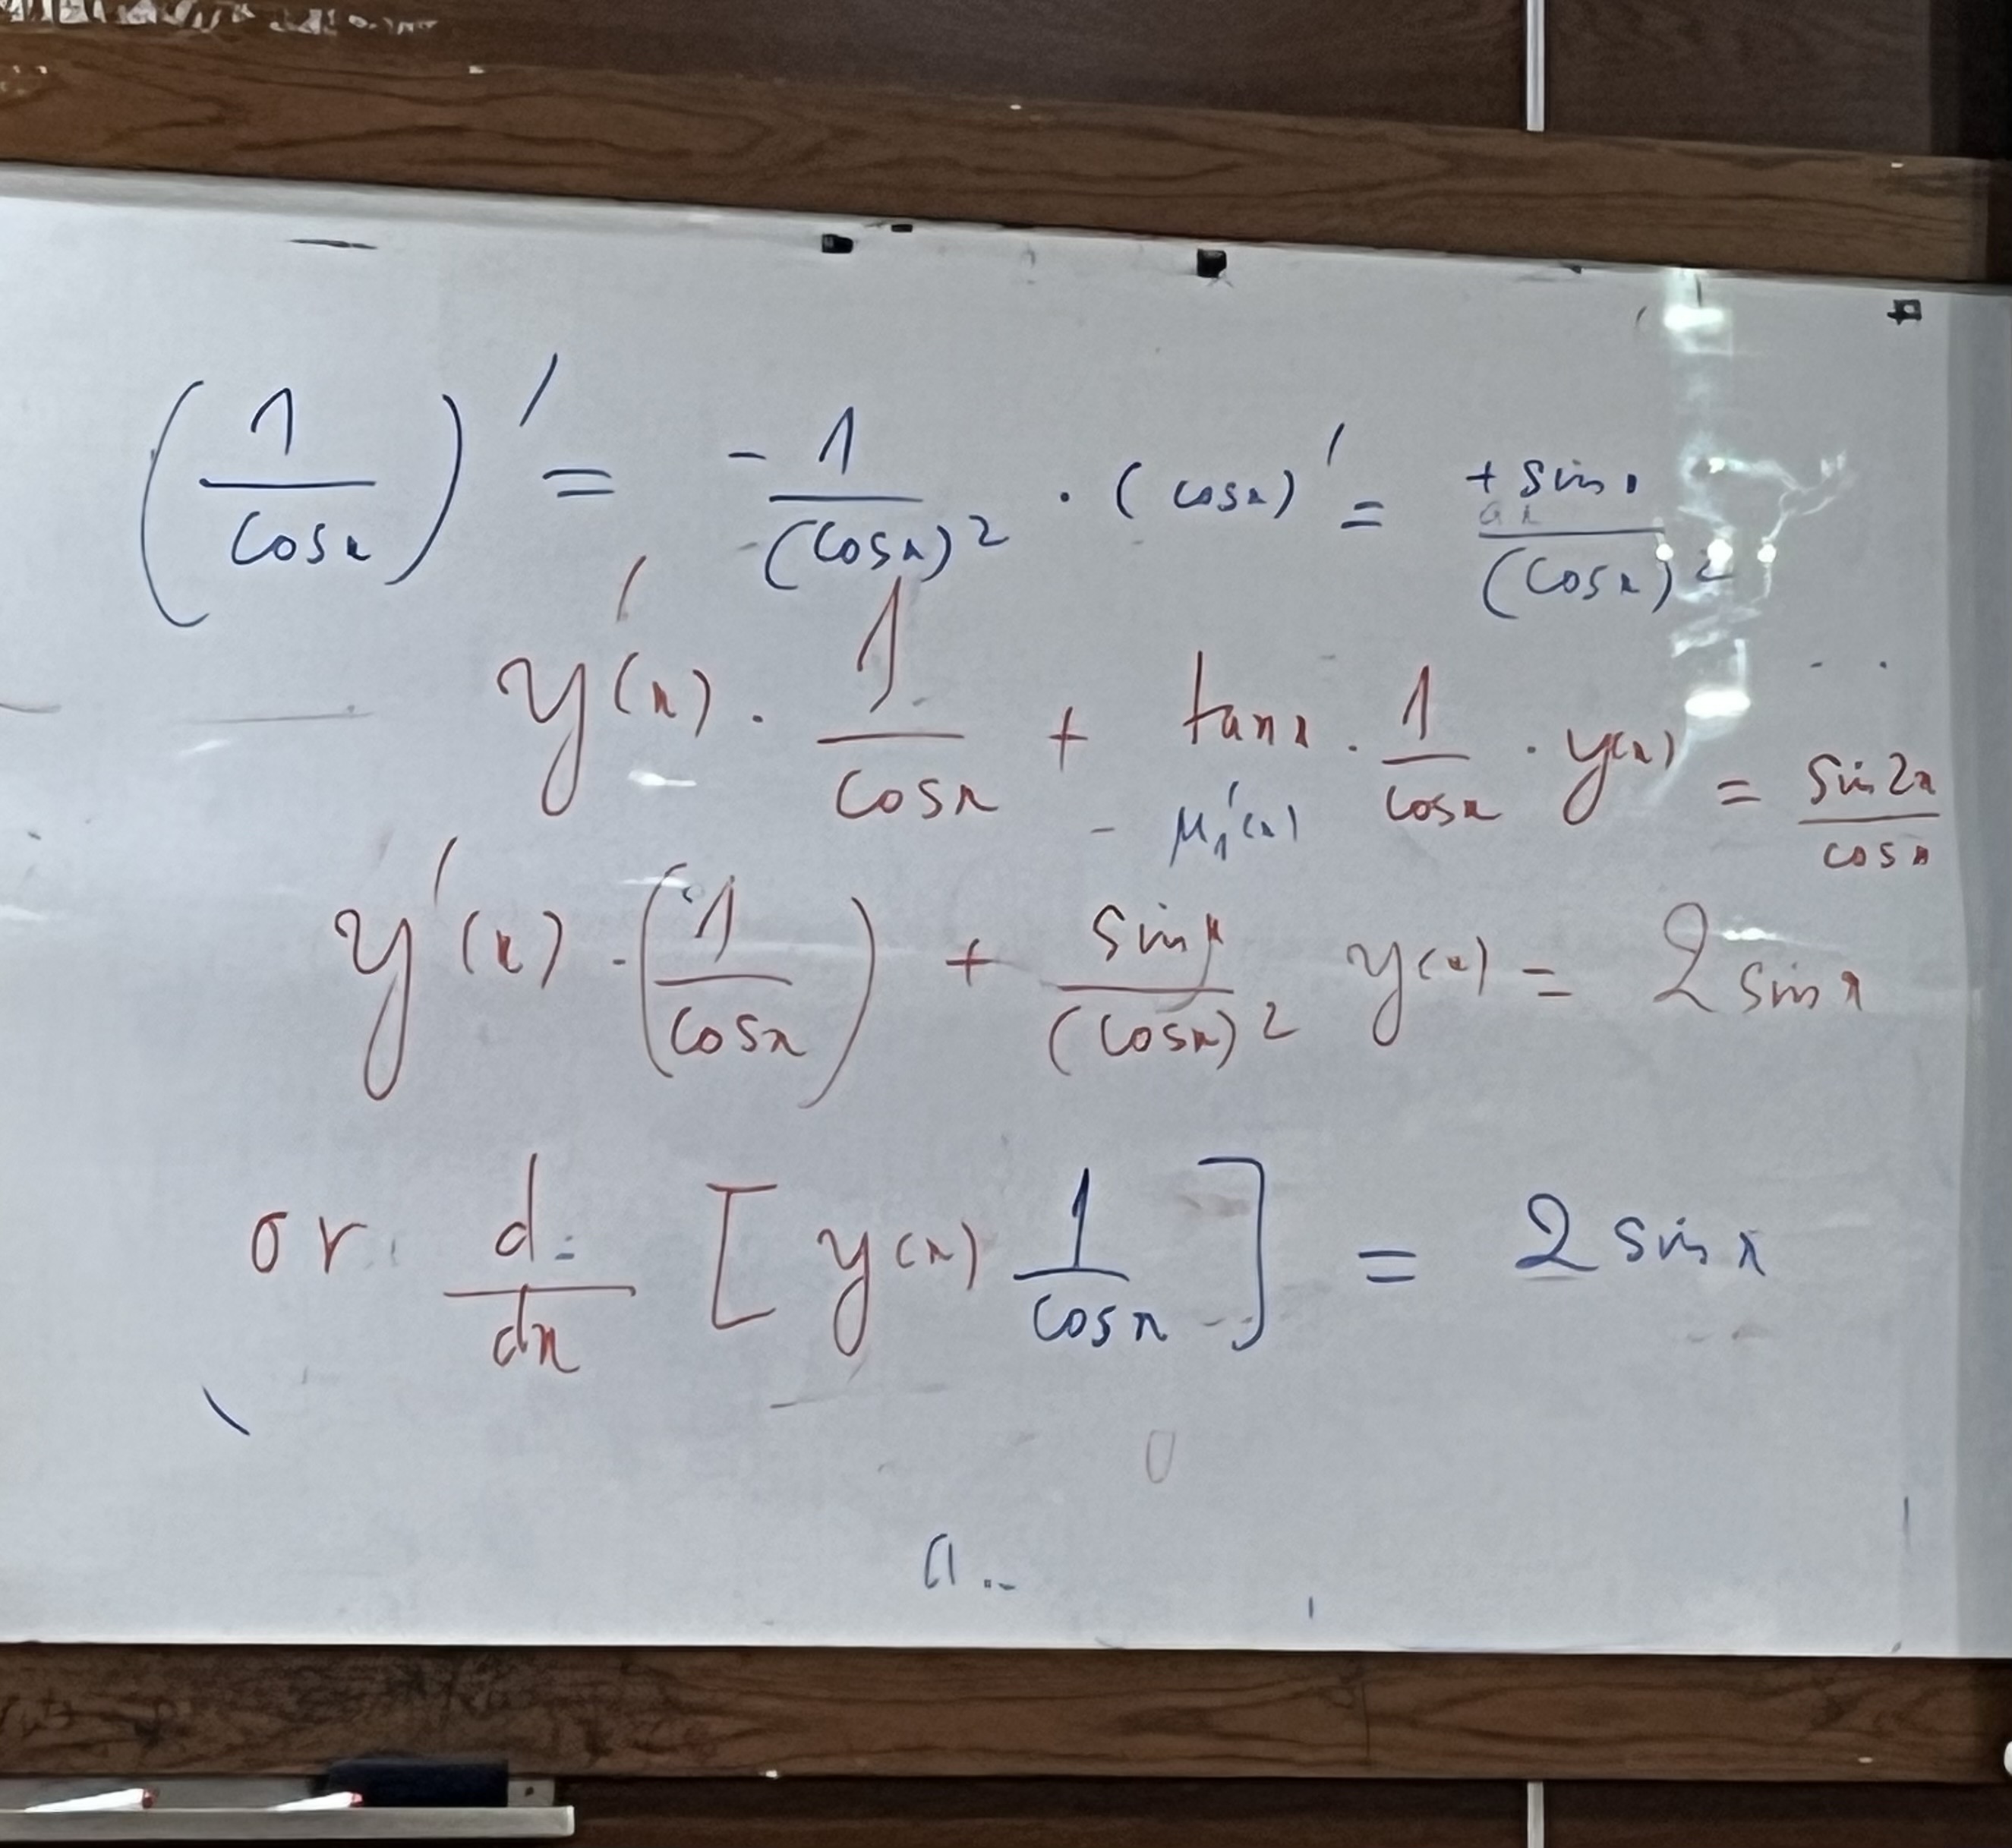 (1/cosx)' = -1/(cosx)² · (cosx)' = +sinx/(cosx)²
y'(x) · 1/cosx + tanx · 1/cosx · y(x) = sin2x/cosx
- μ₁'(x)
y'(x) · (1/cosx) + sinx/(cosx)² y(x) = 2sinx
or d/dx [y(x) 1/cosx] = 2sinx